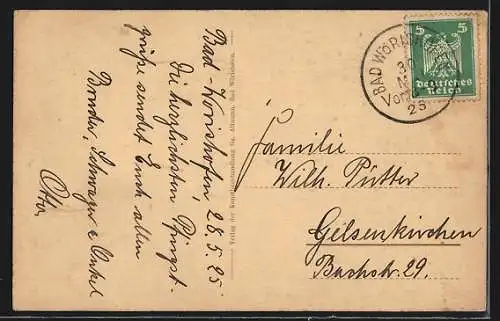 Bad-Wörishofen, 28.5.25.
Die herzlichsten Pfingst-
grüße sendet Euch allen
Bruder, Schwager & Onkel
Otto.
Verlag der Kunstanstalt Bad Wörishofen.
BAD WÖRISHOFEN
30
25
5 5
Deutsches
Reich
Familie
Wilh. Pütter
Gelsenkirchen
Bachstr. 29.